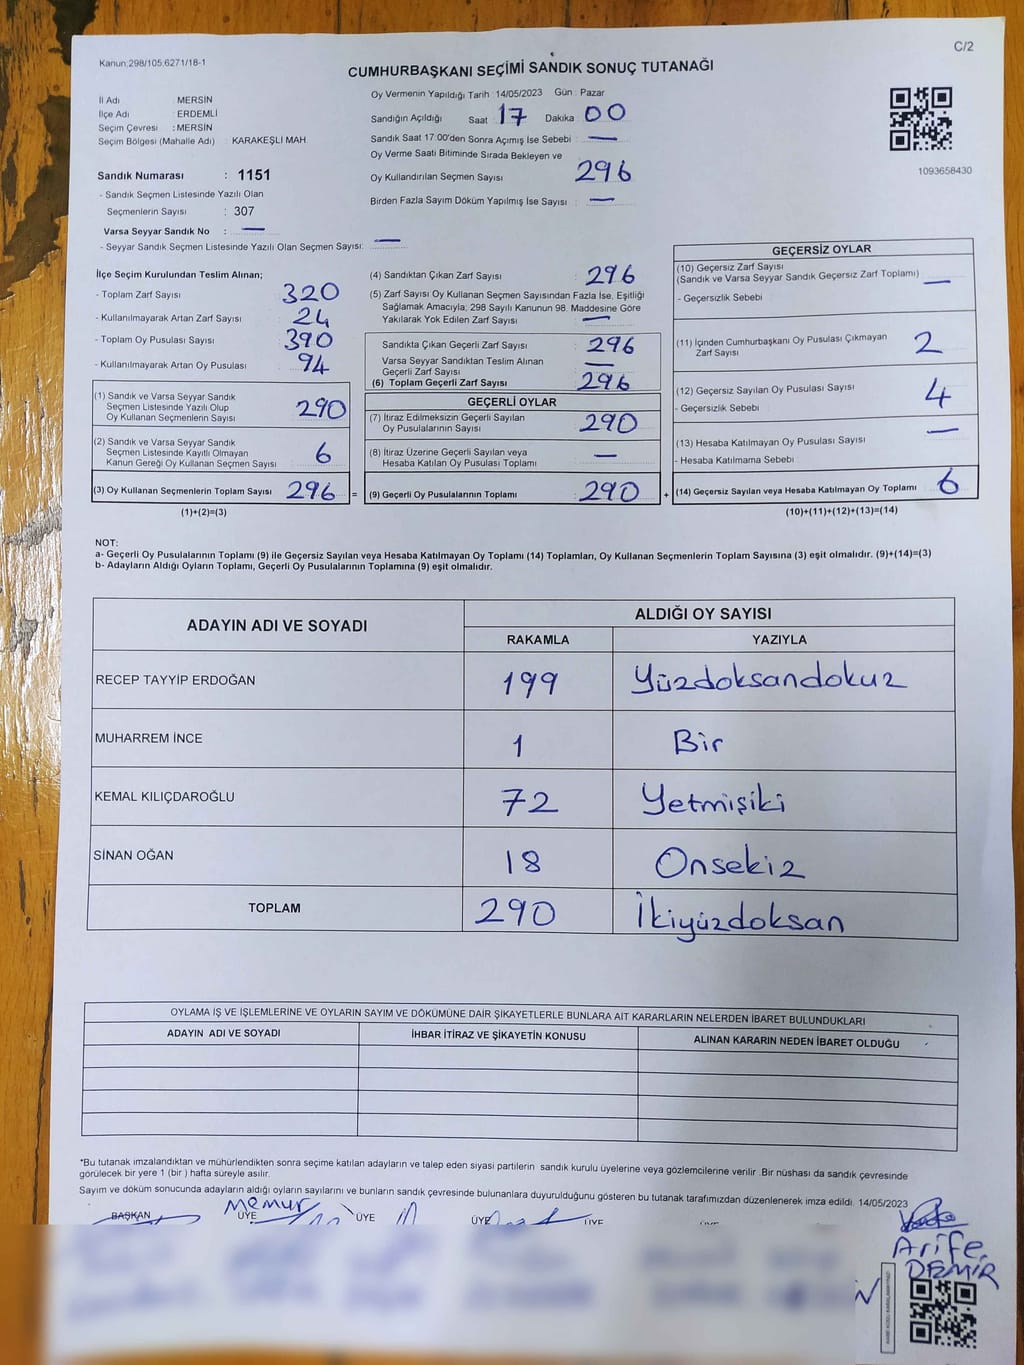 C/2
Kanun:298/105,6271/18-1
CUMHURBAŞKANI SEÇİMİ SANDIK SONUÇ TUTANAĞI
İl Adı : MERSİN
İlçe Adı : ERDEMLİ
Seçim Çevresi : MERSİN
Seçim Bölgesi (Mahalle Adı) : KARAKEŞLİ MAH.
Sandık Numarası : 1151
- Sandık Seçmen Listesinde Yazılı Olan
Seçmenlerin Sayısı : 307
Varsa Seyyar Sandık No : —
- Seyyar Sandık Seçmen Listesinde Yazılı Olan Seçmen Sayısı: —
Oy Vermenin Yapıldığı Tarih : 14/05/2023 Gün : Pazar
Sandığın Açıldığı Saat : 17 Dakika : 00
Sandık Saat 17:00'den Sonra Açımış İse Sebebi : —
Oy Verme Saati Bitiminde Sırada Bekleyen ve
Oy Kullandırılan Seçmen Sayısı : 296
Birden Fazla Sayım Döküm Yapılmış İse Sayısı : —
1093658430
İlçe Seçim Kurulundan Teslim Alınan;
- Toplam Zarf Sayısı : 320
- Kullanılmayarak Artan Zarf Sayısı : 24
- Toplam Oy Pusulası Sayısı : 390
- Kullanılmayarak Artan Oy Pusulası : 94
(1) Sandık ve Varsa Seyyar Sandık
Seçmen Listesinde Yazılı Olup
Oy Kullanan Seçmenlerin Sayısı : 290
(2) Sandık ve Varsa Seyyar Sandık
Seçmen Listesinde Kayıtlı Olmayan
Kanun Gereği Oy Kullanan Seçmen Sayısı : 6
(3) Oy Kullanan Seçmenlerin Toplam Sayısı : 296 =
(1)+(2)=(3)
(4) Sandıktan Çıkan Zarf Sayısı : 296
(5) Zarf Sayısı Oy Kullanan Seçmen Sayısından Fazla İse, Eşitliği
Sağlamak Amacıyla; 298 Sayılı Kanunun 98. Maddesine Göre
Yakılarak Yok Edilen Zarf Sayısı : —
Sandıkta Çıkan Geçerli Zarf Sayısı : 296
Varsa Seyyar Sandıktan Teslim Alınan
Geçerli Zarf Sayısı : —
(6) Toplam Geçerli Zarf Sayısı : 296
GEÇERLİ OYLAR
(7) İtiraz Edilmeksizin Geçerli Sayılan
Oy Pusulalarının Sayısı : 290
(8) İtiraz Üzerine Geçerli Sayılan veya
Hesaba Katılan Oy Pusulası Toplamı : —
(9) Geçerli Oy Pusulalarının Toplamı : 290 +
GEÇERSİZ OYLAR
(10) Geçersiz Zarf Sayısı
(Sandık ve Varsa Seyyar Sandık Geçersiz Zarf Toplamı) : —
- Geçersizlik Sebebi
(11) İçinden Cumhurbaşkanı Oy Pusulası Çıkmayan
Zarf Sayısı : 2
(12) Geçersiz Sayılan Oy Pusulası Sayısı : 4
- Geçersizlik Sebebi
(13) Hesaba Katılmayan Oy Pusulası Sayısı : —
- Hesaba Katılmama Sebebi
(14) Geçersiz Sayılan veya Hesaba Katılmayan Oy Toplamı : 6
(10)+(11)+(12)+(13)=(14)
NOT:
a- Geçerli Oy Pusulalarının Toplamı (9) ile Geçersiz Sayılan veya Hesaba Katılmayan Oy Toplamı (14) Toplamları, Oy Kullanan Seçmenlerin Toplam Sayısına (3) eşit olmalıdır. (9)+(14)=(3)
b- Adayların Aldığı Oyların Toplamı, Geçerli Oy Pusulalarının Toplamına (9) eşit olmalıdır.
ADAYIN ADI VE SOYADI ALDIĞI OY SAYISI
RAKAMLA YAZIYLA
RECEP TAYYİP ERDOĞAN 199 Yüzdoksandokuz
MUHARREM İNCE 1 Bir
KEMAL KILIÇDAROĞLU 72 Yetmişiki
SİNAN OĞAN 18 Onsekiz
TOPLAM 290 İkiyüzdoksan
OYLAMA İŞ VE İŞLEMLERİNE VE OYLARIN SAYIM VE DÖKÜMÜNE DAİR ŞİKAYETLERLE BUNLARA AİT KARARLARIN NELERDEN İBARET BULUNDUKLARI
ADAYIN ADI VE SOYADI İHBAR İTİRAZ VE ŞİKAYETİN KONUSU ALINAN KARARIN NEDEN İBARET OLDUĞU
*Bu tutanak imzalandıktan ve mühürlendikten sonra seçime katılan adayların ve talep eden siyasi partilerin sandık kurulu üyelerine veya gözlemcilerine verilir. Bir nüshası da sandık çevresinde
görülecek bir yere 1 (bir ) hafta süreyle asılır.
Sayım ve döküm sonucunda adayların aldığı oyların sayılarını ve bunların sandık çevresinde bulunanlara duyurulduğunu gösteren bu tutanak tarafımızdan düzenlenerek imza edildi. 14/05/2023
Memur
BAŞKAN ÜYE ÜYE ÜYE ÜYE
Arife
DEMİR